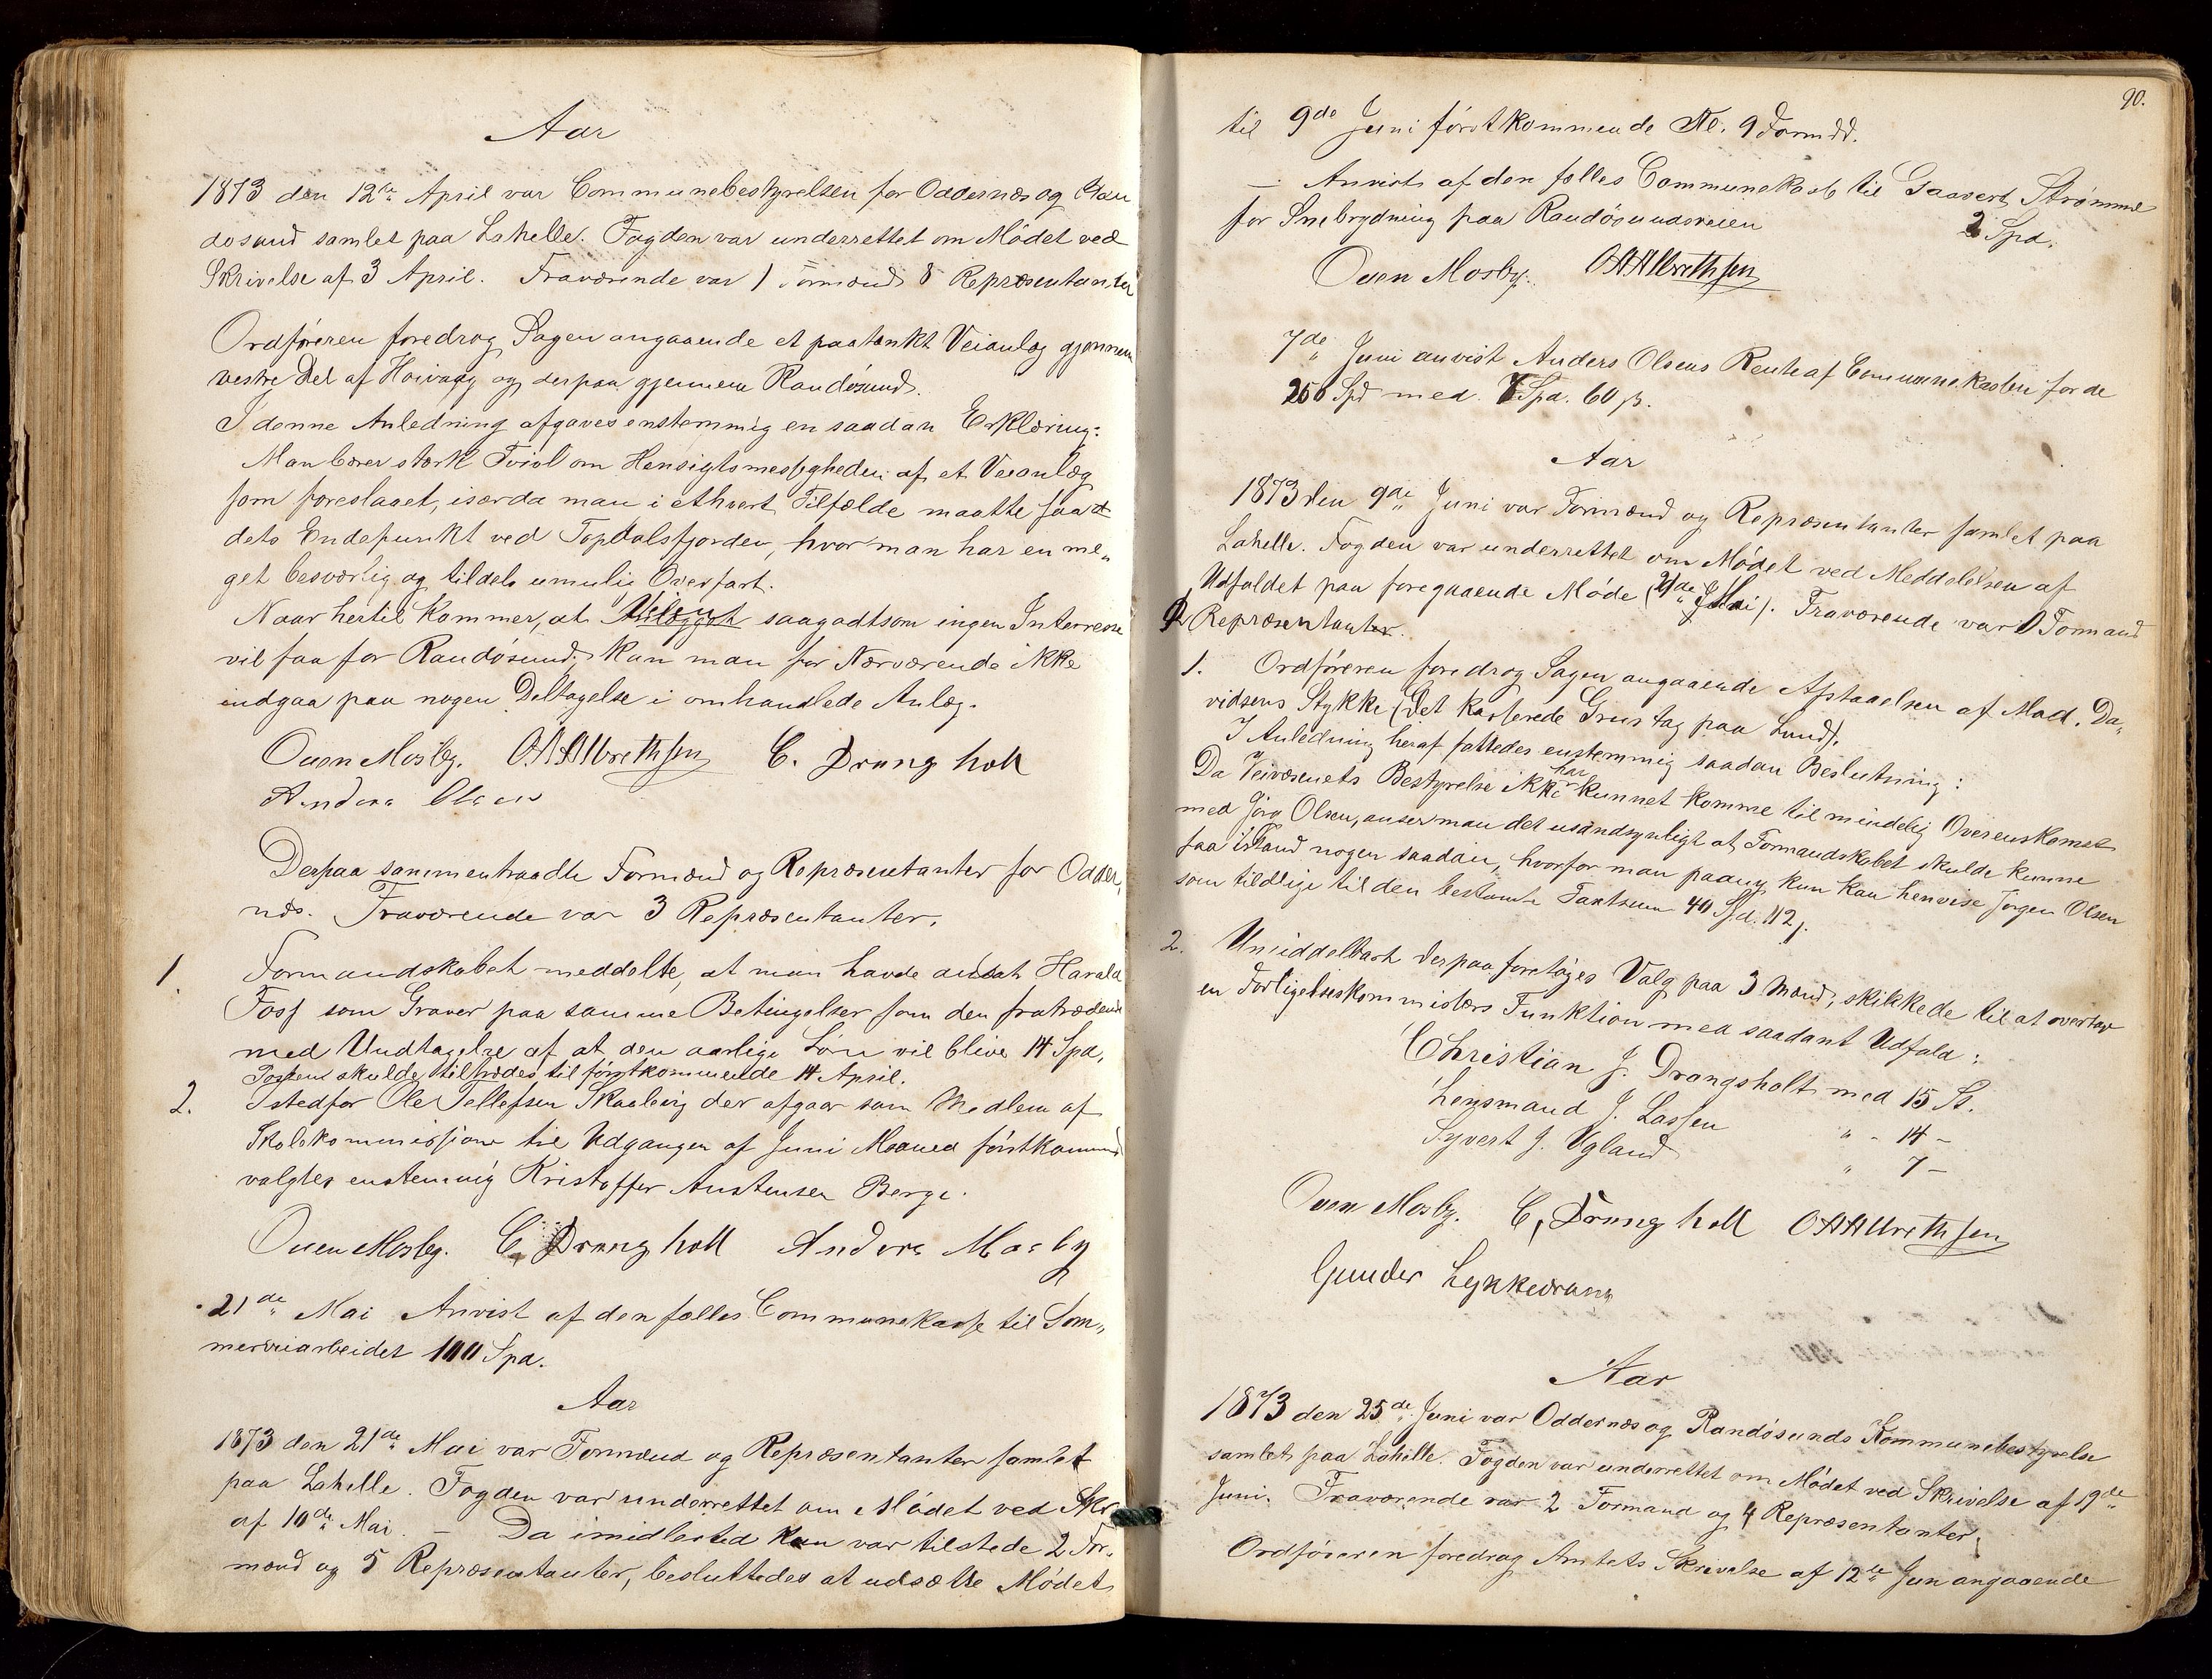 Aar
1873 den 12te April var Communebestyrelsen for Oddernæs og Ran
dosund samlet paa Lahelle. Fogden var underrettet om Mödet ved
Skrivelse af 3 April. Fraværende var 1 Formænd 8 Repræsentanter
Ordföreren foredrog Sagen angaaende et paatænkt Veianlæg gjennem
vestre Del af Höivaag og derpaa gjennem Randösund.
I denne Anledning afgaves enstemmig en saadan Erklæring:
Man bærer stærk Tvivl om Hensigtsmessigheden af et Veianlæg
som foreslaaet, isærda man i ethvert Tilfælde maatte faa et
dets Endepunkt ved Topdalsfjorden, hvor man har en me„
get besværlig og tildels umulig Overfart.
Naar hertil kommer, at saagodtsom ingen Interesse
vil faa for Randösund, kan man for Nærværende ikke
indgaa paa nogen Deltagelse i omhandlede Anlæg.
Ouen Mosby. O A Albrethsen C. Drangholt
Anders Olsen
Derpaa sammentraadte Formænd og Repræsentanter for Odder„
næs. Fraværende var 3 Repræsentanter.
1. Formandskabet meddelte, at man havde ansat Harald
Foss som Graver paa samme Betingelser som den fratrædende
med Undtagelse af at den aarlige Lön vil blive 14 Spd.
Posten skulde tiltrædes til förstkommende 14 April.
2. Istedfor Ole Tellefsen Skaalevig der afgaar som Medlem af
Skolekommissionen til Udgangen af Juni Maaned förstkommend
valgtes enstemmig Kristoffer Austensen Berge.
Ouen Mosby. C. Drangholt Anders Mosby
21de Mai Anvist af den fælles Communekasse til Som„
merveiarbeidet 100 Spd.
Aar
1873 den 21de Mai var Formænd og Repræsentanter samlet
paa Lahelle. Fogden var underrettet om Mödet ved Skr.
af 10de Mai. – Da imidlertid kun var tilstede 2 For„
mænd og 5 Repræsentanter, besluttedes at udsætte Mödet
90.
til 9de Juni förstkommende Kl. 9 Formdd.
— Anvist af den fælles Communekasse til Gaavert Strømme
for Snebrydning paa Randösundsveien 2 Spd.
Ouen Mosby. O A Albrethsen
7de Juni anvist Anders Olsens Rente af Communekassen for de
250 Spd med Spd. 60 ß.
Aar
1873 den 9de Juni var Formænd og Repræsentanter samlet paa
Lahelle. Fogden var underrettet om Mödet ved Meddelelsen af
Udfaldet paa foregaaende Möde (21de Mai). Fraværende var Formand
Repræsentanter.
1. Ordföreren foredrog Sagen angaaende Afstaaelsen af Mad. Da„
vidsens Stykke (det kasserede Grustag paa Lund).
I Anledning heraf fattedes enstemmig saadan Beslutning:
Da Veivæsenets Bestyrelse ikke har kunnet komme til mindelig Overenskomst
med Jörg Olsen, anser man det usandsynligt at Formandskabet skulde kunne
faa istand nogen saadan, hvorfor man paany kun kan henvise Jörgen Olsen
som tidlige til den bestemte Taxtsum 40 Spd. 112 ß.
2. Umiddelbart derpaa foretoges Valg paa 3 Mænd, skikkede til at overtage
en Forligelseskommisærs Funktion med saadant Udfald:
Christian J. Drangsholt med 15 St.
Lensmand J. Lassen " - 14 –
Syvert J. Ugland " 7 –
Ouen Mosby. C. Drangholt O A Albrethsen
Gunder Lykkedrang
Aar
1873 den 25de Juni var Oddernæs og Randösunds Kommunebestyrelse
samlet paa Lahelle. Fogden var underrettet om Mödet ved Skrivelse af 19de
Juni. Fraværende var 2 Formænd og 4 Repræsentanter.
Ordföreren foredrog Amtets Skrivelse af 12te Juni angaaende